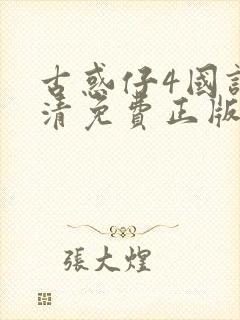 古惑仔4國
清免費正版
張大煌